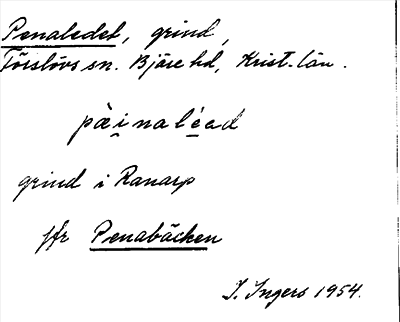 Penaledet, grind,
Förslövs sn. Bjäre hd, Krist. län.
pà̤inaléad
grind i Ranarp
jfr Penabäcken
I. Ingers 1954.